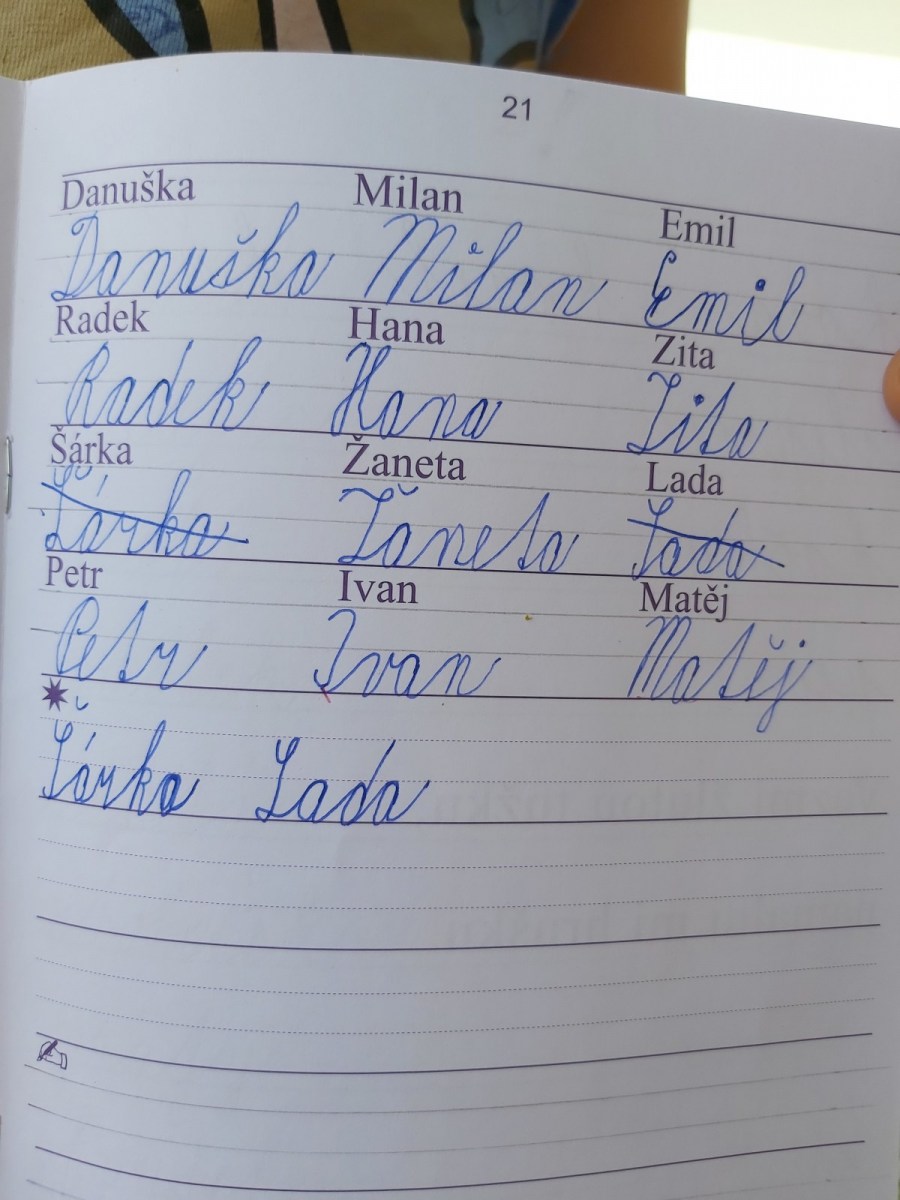 21
Danuška Milan Emil
Danuška Milan Emil
Radek Hana Zita
Radek Hana Zita
Šárka Žaneta Lada
Šárka Žaneta Lada
Petr Ivan Matěj
Petr Ivan Matěj
Šárka Lada